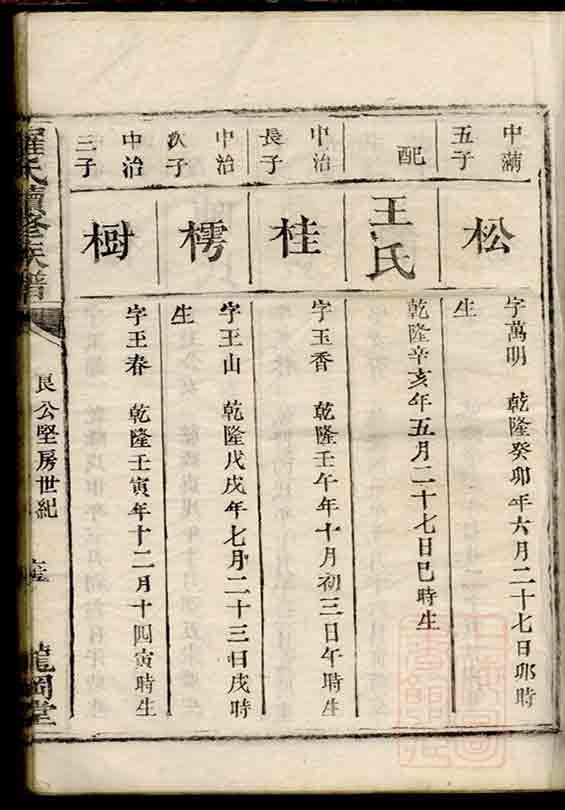 中滿
五子
松
字萬明 乾隆癸卯年六月二十七日卯時
生
配
王氏
乾隆辛亥年五月二十七日巳時生
中治
長子
桂
字玉香 乾隆壬午年十月初三日午時生
中治
次子
樗
字王山 乾隆戊戌年七月二十三日戌時
生
中治
三子
樹
字王春 乾隆壬寅年十二月十四寅時生
羅氏續修族譜
良公堅房世紀
龍岡堂